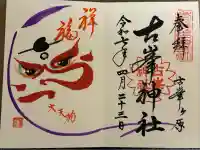 奉拝
古峯ヶ原
古峯神社
令和七年四月二十三日
祥福
大天狗